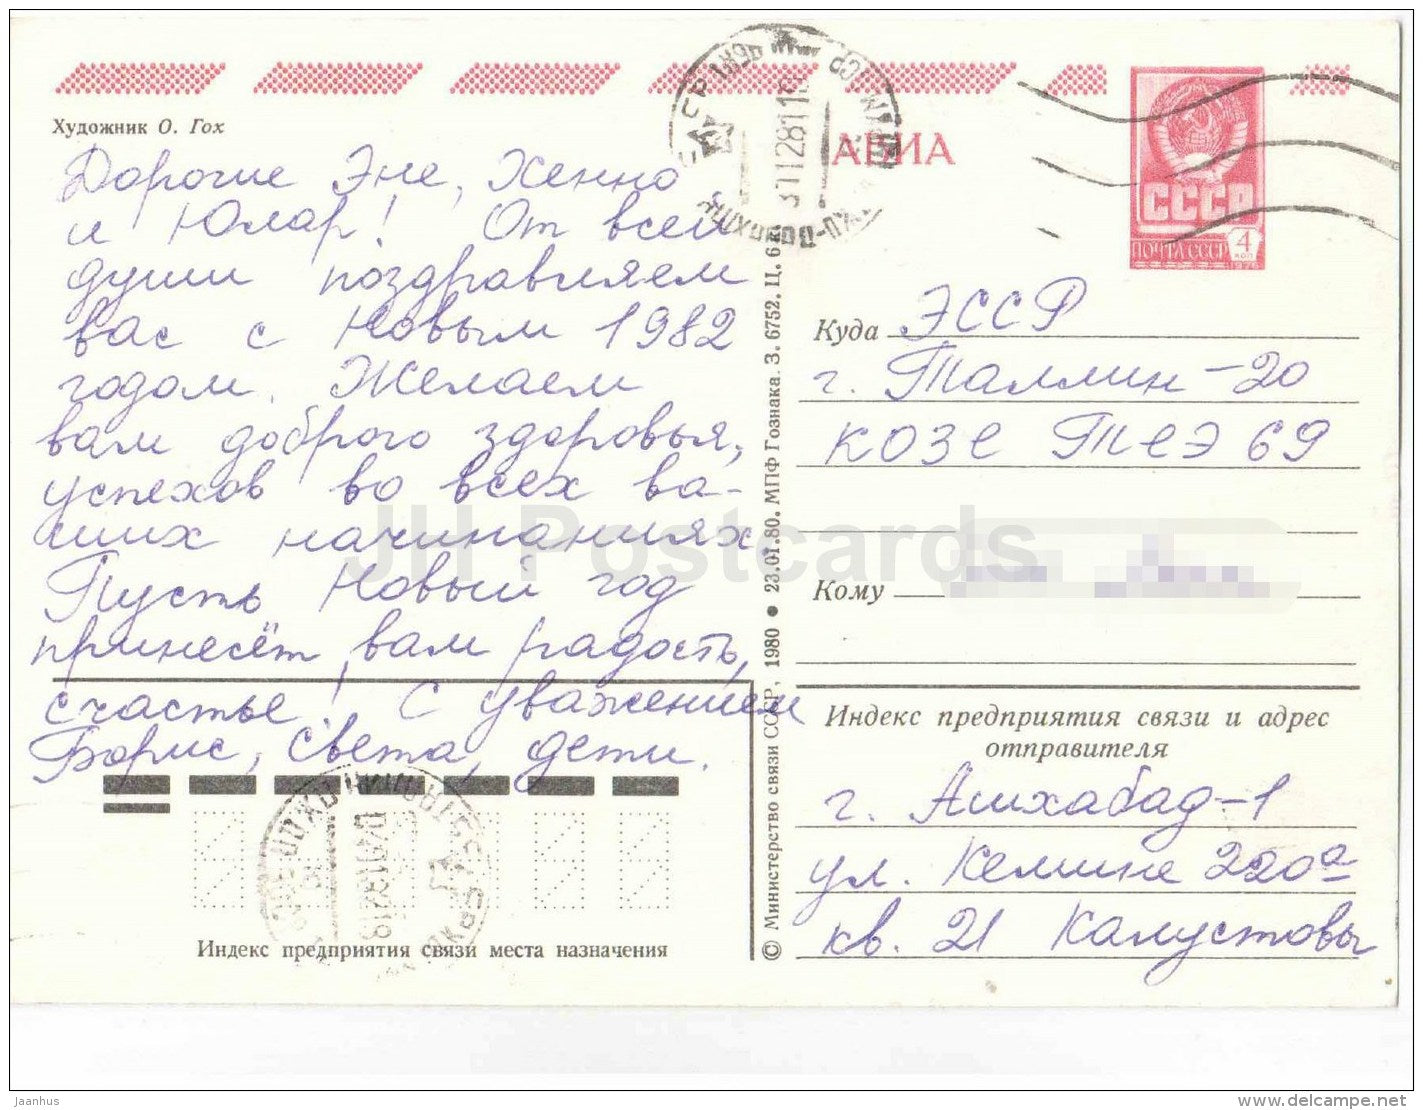 Художник О. Гох
Дорогие Эне, Хенно
и Юлар! От всей
души поздравляем
вас с Новым 1982
годом. Желаем
вам доброго здоровья,
успехов во всех ва-
ших начинаниях.
Пусть Новый год
принесёт вам радость,
счастье! С уважением
Борис, Света, дети.
Индекс предприятия связи места назначения
© Министерство связи СССР, 1980 • 23.01.80. МПФ Гознака. З. 6752. Ц. 6 к.
АВИА
СССР
ПОЧТА СССР
4
КОП
1976
Куда ЭССР
г. Таллин-20
КОЗЕ ТЕЭ 69
Кому
Индекс предприятия связи и адрес
отправителя
г. Ашхабад-1
ул. Кемине 220а
кв. 21 Калустовы
JH Postcards
Jaanhus
www.delcampe.net